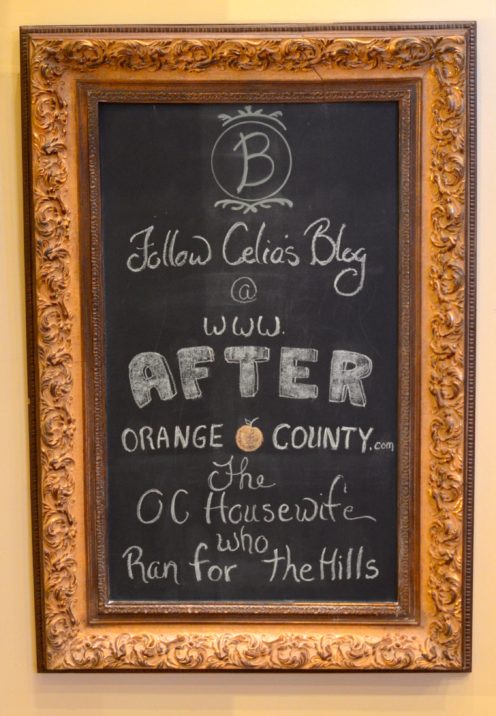 B
Follow Celia's Blog
@
www.
AFTER
ORANGE COUNTY.com
The
OC Housewife
who
Ran for the Hills